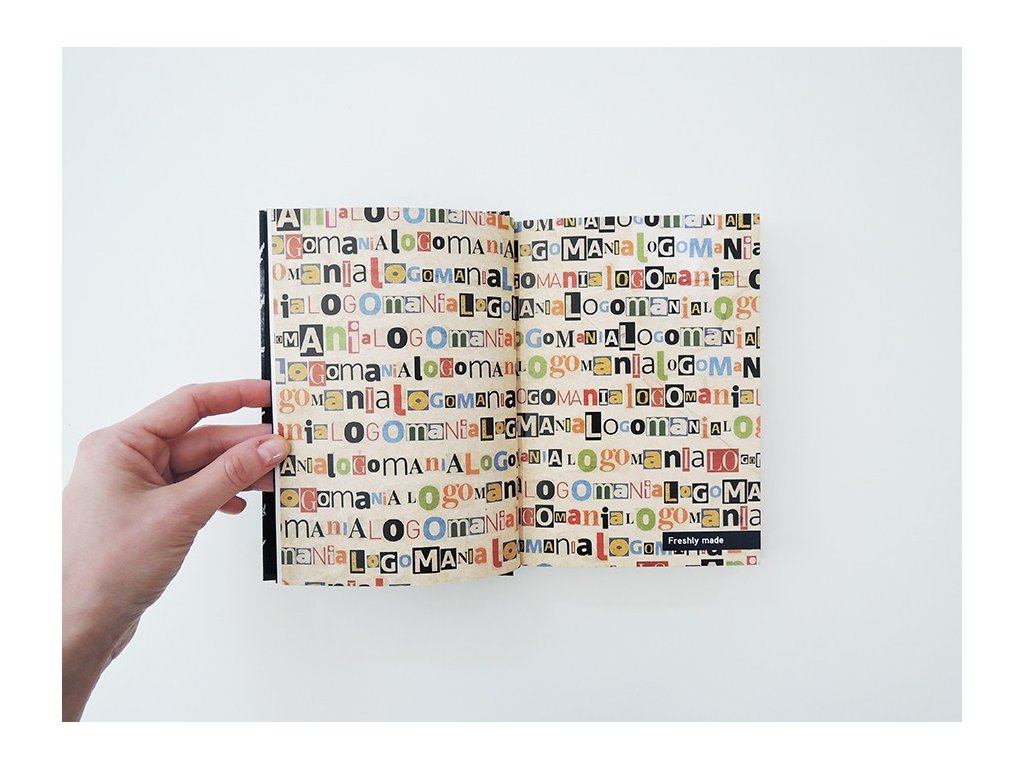 ANiaLOGOmaniaL
OGOmaNiAlOGOmANiA
OmaniALOGOmANiaL
niaLOGOmaNiaLOGO
OmANiaLOGOmaNia
LOGOmaNiALOGOmaN
OGOmaNIALOGOmANia
aniaLOGOmaNiaLOG
ANialOGOmAniALOGO
LOGOmaNiALOGOmAN
OmANiALOGOmaNia
maNiaLOGOMANiaLO
OmANiALOGOmaNiAL
LOGOMANialOGOMaNi
GOMANiaLOGOmaniaLO
ANiaLOGOmaNiALOGO
OGOmANiALOGOmania
LOGOmANiaLOGOmAN
OGOmANIalOGOmania
MANiaLOGOmaNiaLOG
ANiALOGOmaNiaLOGO
LOGOmaNiaLOGOMA
GOmaNiaLOGOmaNi
OmANiaLOGO
Freshly made